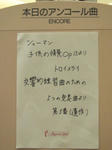 本日のアンコール曲
ENCORE
シューマン
子供の情景 Op.15より
トロイメライ
交響的練習曲のための
5つの変奏曲より
第5番(遺作)